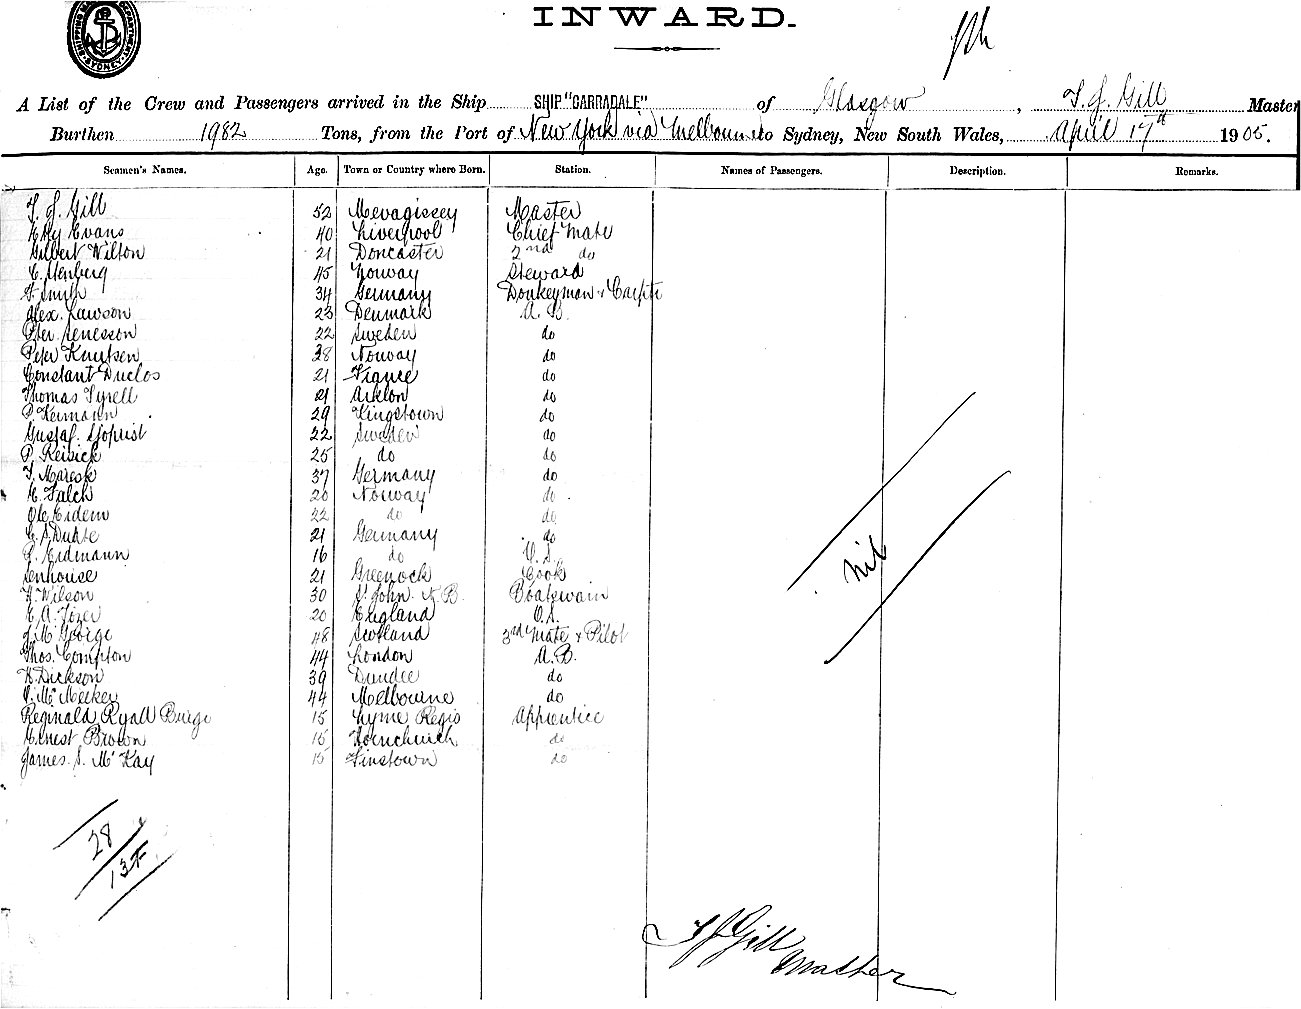 SHIPPING MASTER'S DEPARTMENT SYDNEY
INWARD.
A List of the Crew and Passengers arrived in the Ship SHIP "CARRADALE" of Glasgow, T. J. Gill Master
Burthen 1982 Tons, from the Port of New York via Melbourne to Sydney, New South Wales, April 17th 1905.
Seamen's Names. Age. Town or Country where Born. Station. Names of Passengers. Description. Remarks.
T. J. Gill 52 Mevagissey Master
Evans 40 Liverpool Chief Mate
Gilbert Wilton 21 Doncaster 2nd do
45 Norway Steward
Smith 34 Germany Donkeyman & Carptr
Alex. Lawson 23 Denmark A. B.
Peter Senesson 22 Sweden do
Peter Knutsen 38 Norway do
Constant Duclos 21 France do
Thomas Tyrell 21 Arklow do
P. 29 Kingstown do
Gustaf. 22 Sweden do
P. Reisick 25 do do
T. Maresk 37 Germany do
E. Falch 20 Norway do
Ole Eidem 22 do do
21 Germany do
P. Erdmann 16 do O. S.
Senhouse 21 Greenock Cook
H. Wilson 30 St. John N. B. Boatswain
E. A. Tozer 20 England O. S.
J. Mc George 48 Scotland 3rd Mate & Pilot
Thos. Compton 44 London A. B.
H. Dickson 39 Dundee do
Mc Meeker 44 Melbourne do
Reginald Ryall Burge 15 Lyme Regis Apprentice
Ernest Brown 15 Hornchurch do
James. S. Mc Kay 15 Finstown do
nil
28
13 F
T J Gill
Master